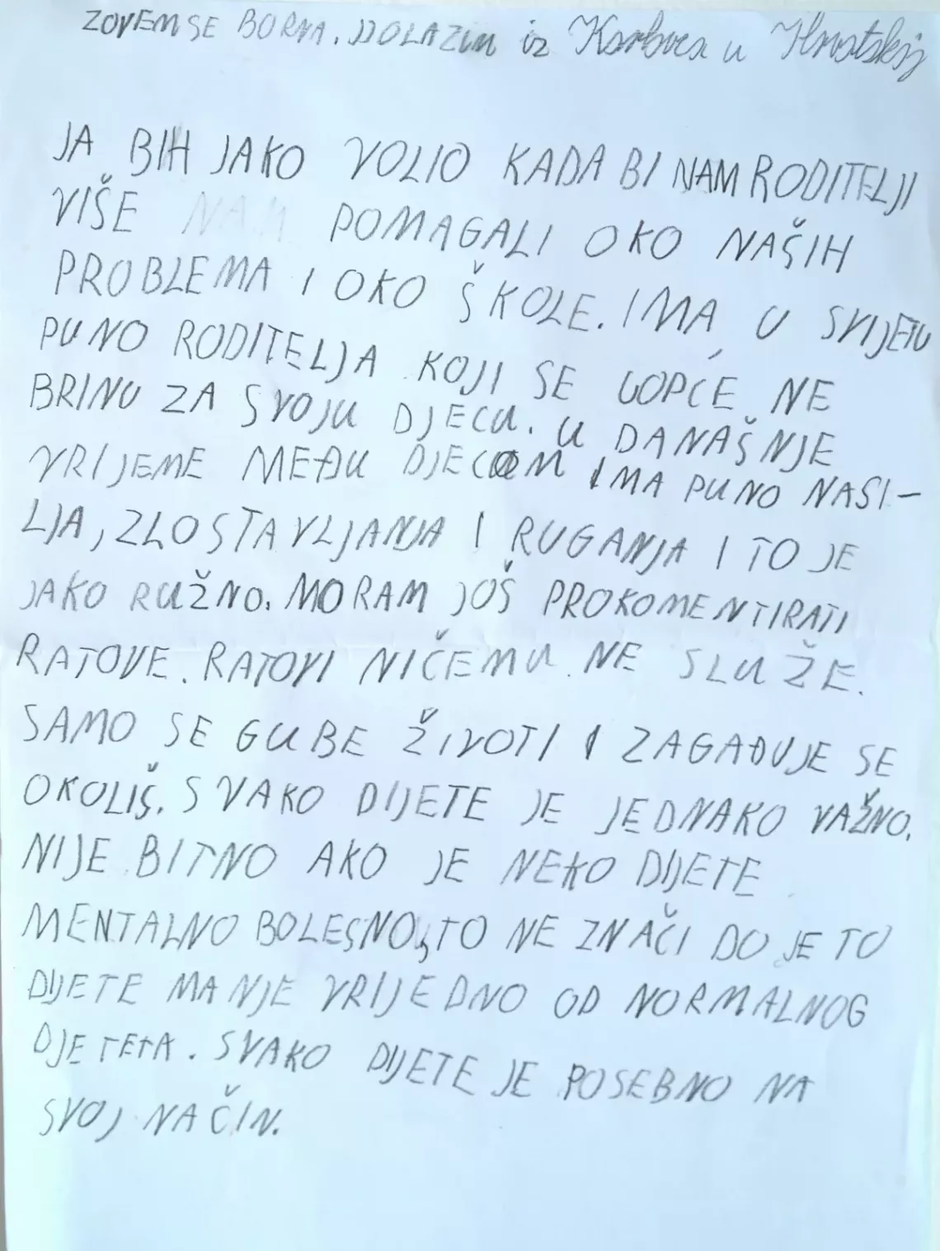 ZOVEM SE BORNA. DOLAZIM iz Karlovca u Hrvatskoj
JA BIH JAKO VOLIO KADA BI NAM RODITELJI
VIŠE NAM POMAGALI OKO NAŠIH
PROBLEMA I OKO ŠKOLE. IMA U SVIJETU
PUNO RODITELJA KOJI SE UOPĆE NE
BRINU ZA SVOJU DJECU. U DANAŠNJE
VRIJEME MEĐU DJECOM IMA PUNO NASI-
LJA, ZLOSTAVLJANJA I RUGANJA I TO JE
JAKO RUŽNO. MORAM JOŠ PROKOMENTIRATI
RATOVE. RATOVI NIČEMU NE SLUŽE.
SAMO SE GUBE ŽIVOTI I ZAGAĐUJE SE
OKOLIŠ. SVAKO DIJETE JE JEDNAKO VAŽNO.
NIJE BITNO AKO JE NEKO DIJETE
MENTALNO BOLESNO, TO NE ZNAČI DO JE TO
DIJETE MANJE VRIJEDNO OD NORMALNOG
DJETETA. SVAKO DIJETE JE POSEBNO NA
SVOJ NAČIN.